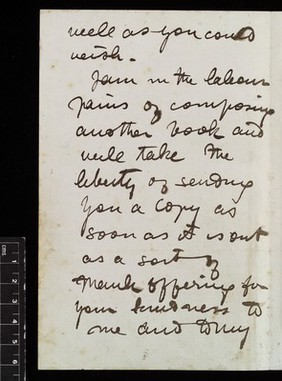 well as you could
wish.
I am in the labour
pains of composing
another book and
will take the
liberty of sending
you a copy as
soon as it is out
as a sort of
thank offering for
your kindness to
me and to my